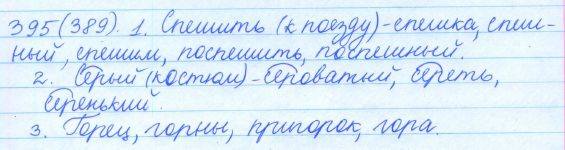 395(389). 1. Спешить (к поезду)-спешка, спеш-
ный, спешим, поспешить, поспешный.
2. Серый(костюм)-сероватый, сереть,
серенький.
3. Горец, горны, пригорок, гора.